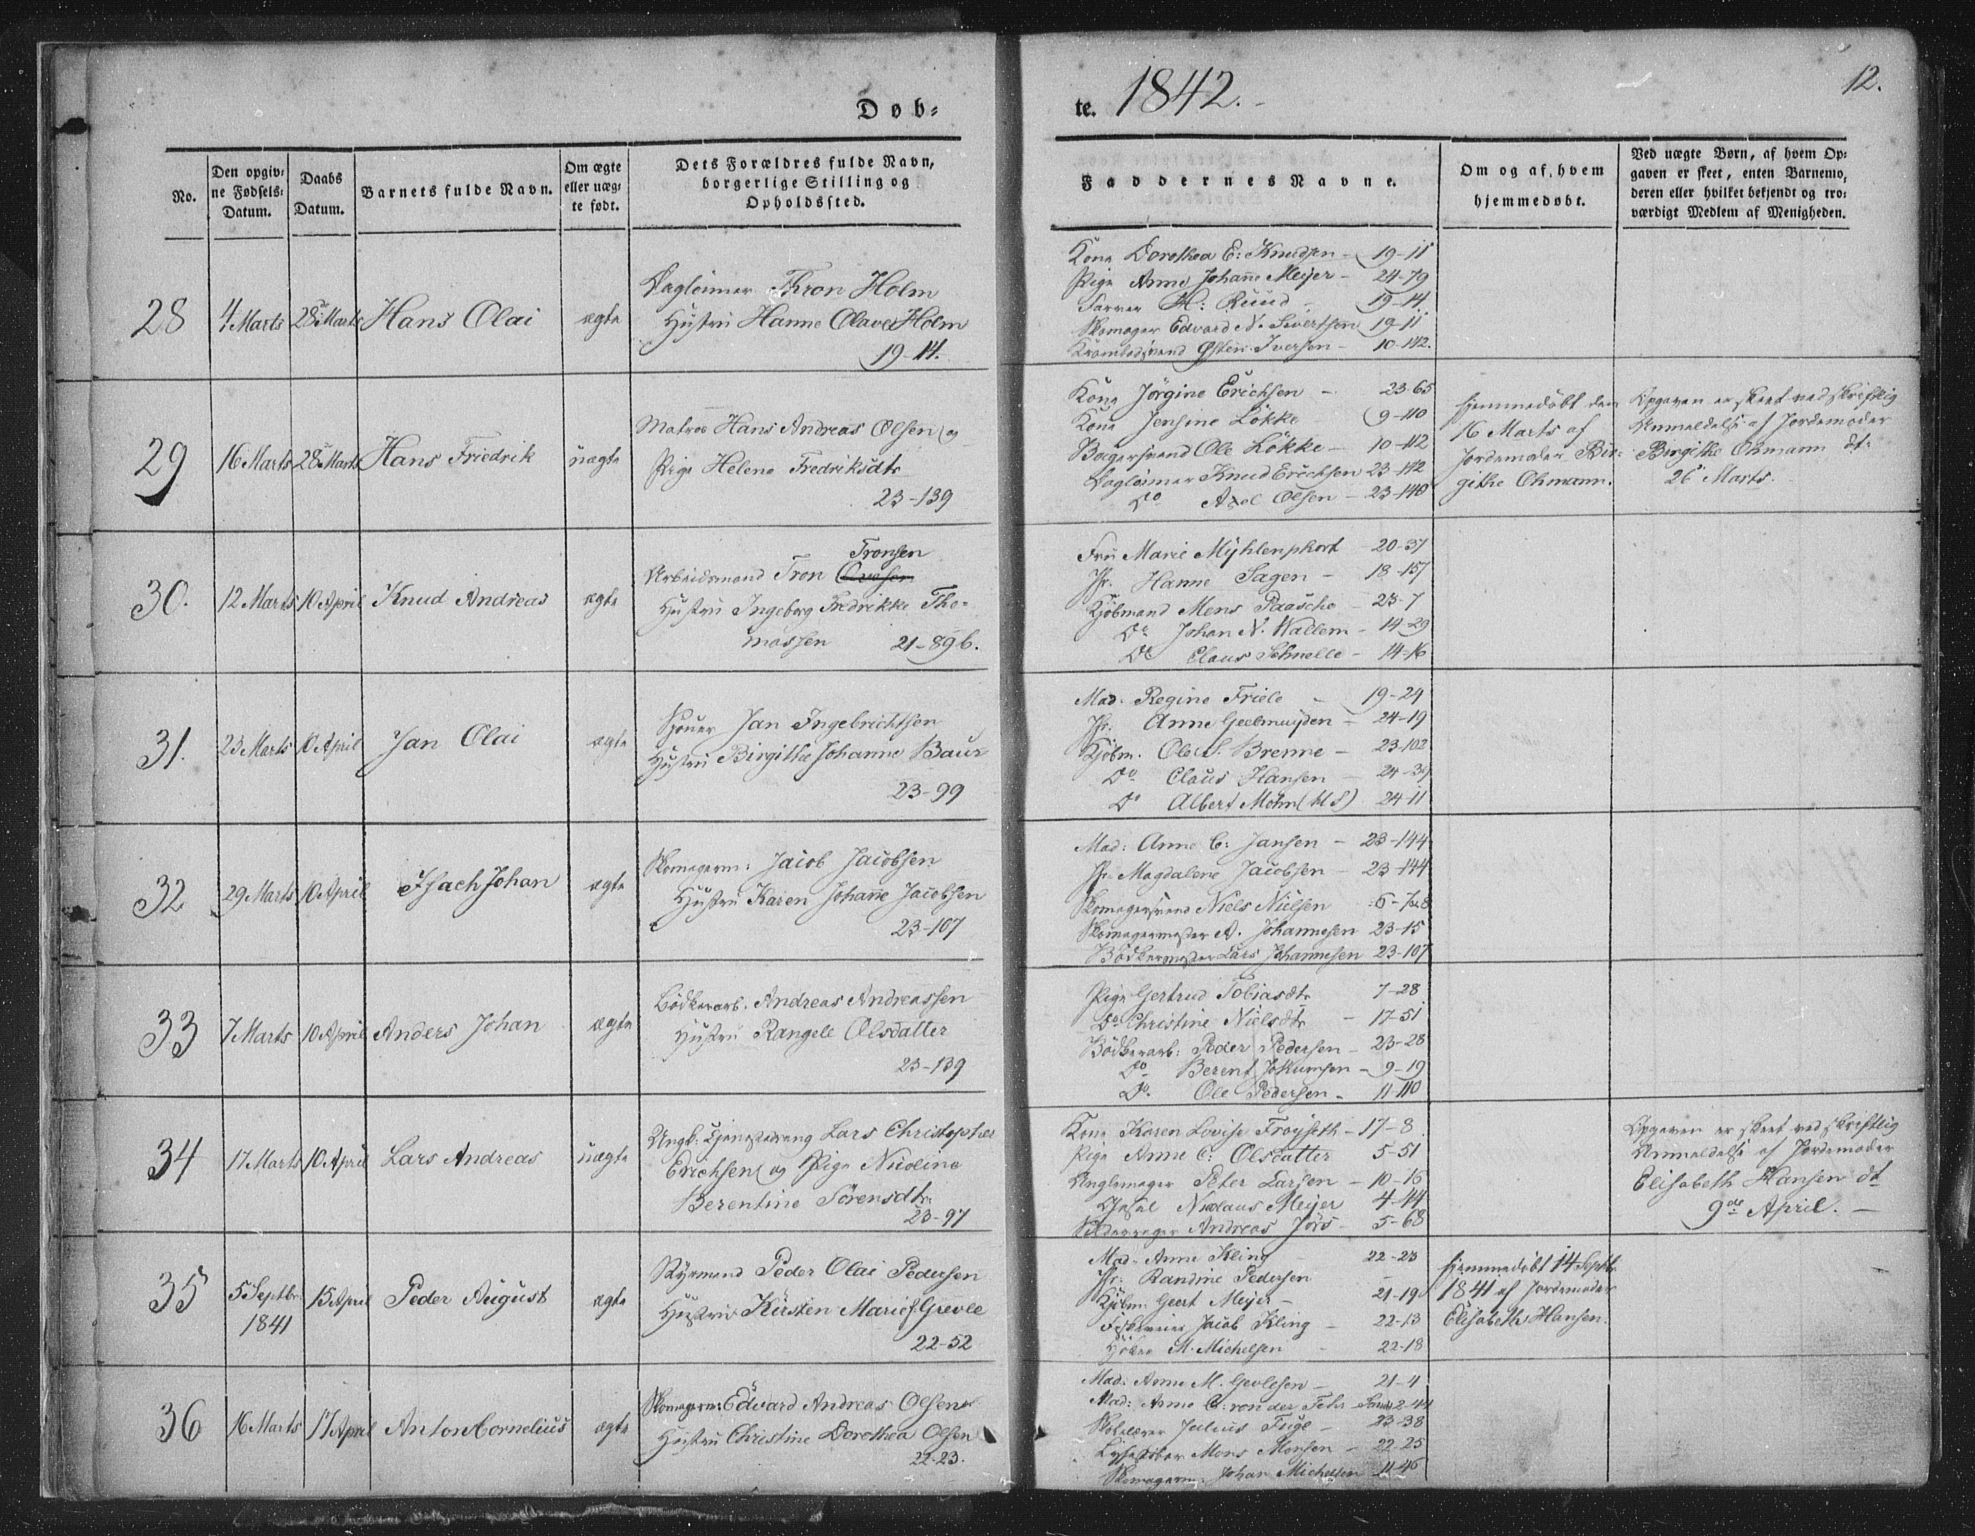 Døb=
te. 1842.
12.
No.
Den opgiv=
ne Fødsels=
Datum.
Daabs
Datum.
Barnets fulde Navn.
Om ægte
eller uæg=
te født.
Dets Forældres fulde Navn,
borgerlige Stilling og
Opholdssted.
Faddernes Navne.
Om og af hvem
hjemmedøbt.
Ved uægte Børn, af hvem Op=
gaven er skeet, enten Barnemo,
deren eller hvilket bekjendt og tro=
værdigt Medlem af Menigheden.
28
4 Marts
28 Marts
Hans Olai
ægte
Dagleiner Thron Holm
Hustru Hanne Olava Holm
19-14.
Kone Dorothea E: Knudsen - 19-11
Pige Anne Johanne Meyer - 24-79
Farver H: Ruud - 19-14
Skomager Edvard N. Sivertsen 19-11
Østen Iversen - 10-142.
29
16 Marts
28 Marts
Hans Friedrik
uægte
Matros Hans Andreas Olsen og
Pige Helene Fredriksdtr
23-139
Kone Jörgine Erichsen - 23-65
Kone Jensine Lökke 9-110
Bagersvend Ole Lökke - 10-112
Dagleiner Knud Erichsen 23-142
Do Axel Olsen - 23-140
hjemmedöbt den
16 Marts af
Jordemoder Bir-
githe Ohmann.
Opgaven er skeet ved skriftlig
Anmeldelse af Jordemoder
Birgithe Ohmann dt:
26 Marts.
30.
12 Marts
10 April
Knud Andreas
ægte
Tronsen
Arbeidsmand Tron
Hustru Ingeborg Fredrikke Tho-
massen 21-89b.
Fru Marie Myhlenphort - 20-37
Jfr. Hanne Sagen - 18-157
Kjöbmand Mens Paasche - 23-7
Do Johan N. Wallem - 14-29
Do Claus Schnelle - 14-16
31.
23 Marts
10 April
Jan Olai
ægte
Jan Ingebrichtsen
Hustru Birgithe Johanne Baur
23-99
Mad. Regine Friele - 19-24
Jfr. Anne Geelmuyden - 24-19
Kjöbm. Ole S. Brenne - 23-102
Do Claus Hansen - 24-39
Do Albert Mohn 24-11
32
29 Marts
10 April
Isach Johan
ægte
Skomagerm: Jacob Jacobsen
Hustru Karen Johanne Jacobsen
23-107
Mad: Anne C: Jansen - 23-144
Jfr. Magdalene Jacobsen - 23-144
Skomagersvend Niels Nielsen
Skomagermester A. Johannesen 23-15
Bödkermester Lars Johannesen 23-107
33
7 Marts
10 April
Anders Johan
ægte
Bödkerarb. Andreas Andreassen
Hustru Rangele Olsdatter
23-139
Pige Gertrud Tobiasdtr 7-28
Do Christine Nielsdtr - 17-51
Bödkerarb: Peder Pedersen - 23-28
Do Berent Jokumsen - 9-19
Do Ole Pedersen - 11-110
34
17 Marts
10 April
Lars Andreas
uægte
Ungk: Tjenestedreng Lars Christopher
Erichsen og Pige Nicoline
Berentine Sörensdtr:
23-97
Kone Karen Lovise Fröyseth - 17-8
Pige Anne C: Olsdatter 5-51
Peter Larsen - 10-16
Nicolaus Meyer 4-44
Andreas Jörs - 5-68
Opgaven er skeet ved skriftlig
Anmeldelse af Jordemoder
Elisabeth Hansen dt
9de April. -
35
5 Septbr
1841
15 April
Peder August
ægte
Styrmand Peder Olai Pedersen
Hustru Kirsten Marie f. Greve
22-52
Mad. Anne Kling - 22-23
Jfr: Randine Pedersen -
Kjöbm. Geert Meyer - 21-19
Jacob Kling - 22-13
M. Michelsen - 22-18
hjemmedöbt 14 Septbr
1841 af Jordemoder
Elisabeth Hansen.
36
16 Marts
17 April
Anton Cornelius
ægte
Skomagerm: Edvard Andreas Olsen
Hustru Christine Dorothea Olsen
22-23.
Mad: Anne M. Gerlesen - 21-4
Mad: Anne C: von der Fehr
Julius Fuge - 23-38
Mons Monsen - 22-25
Skomagerm. Johan Michelsen 11-46